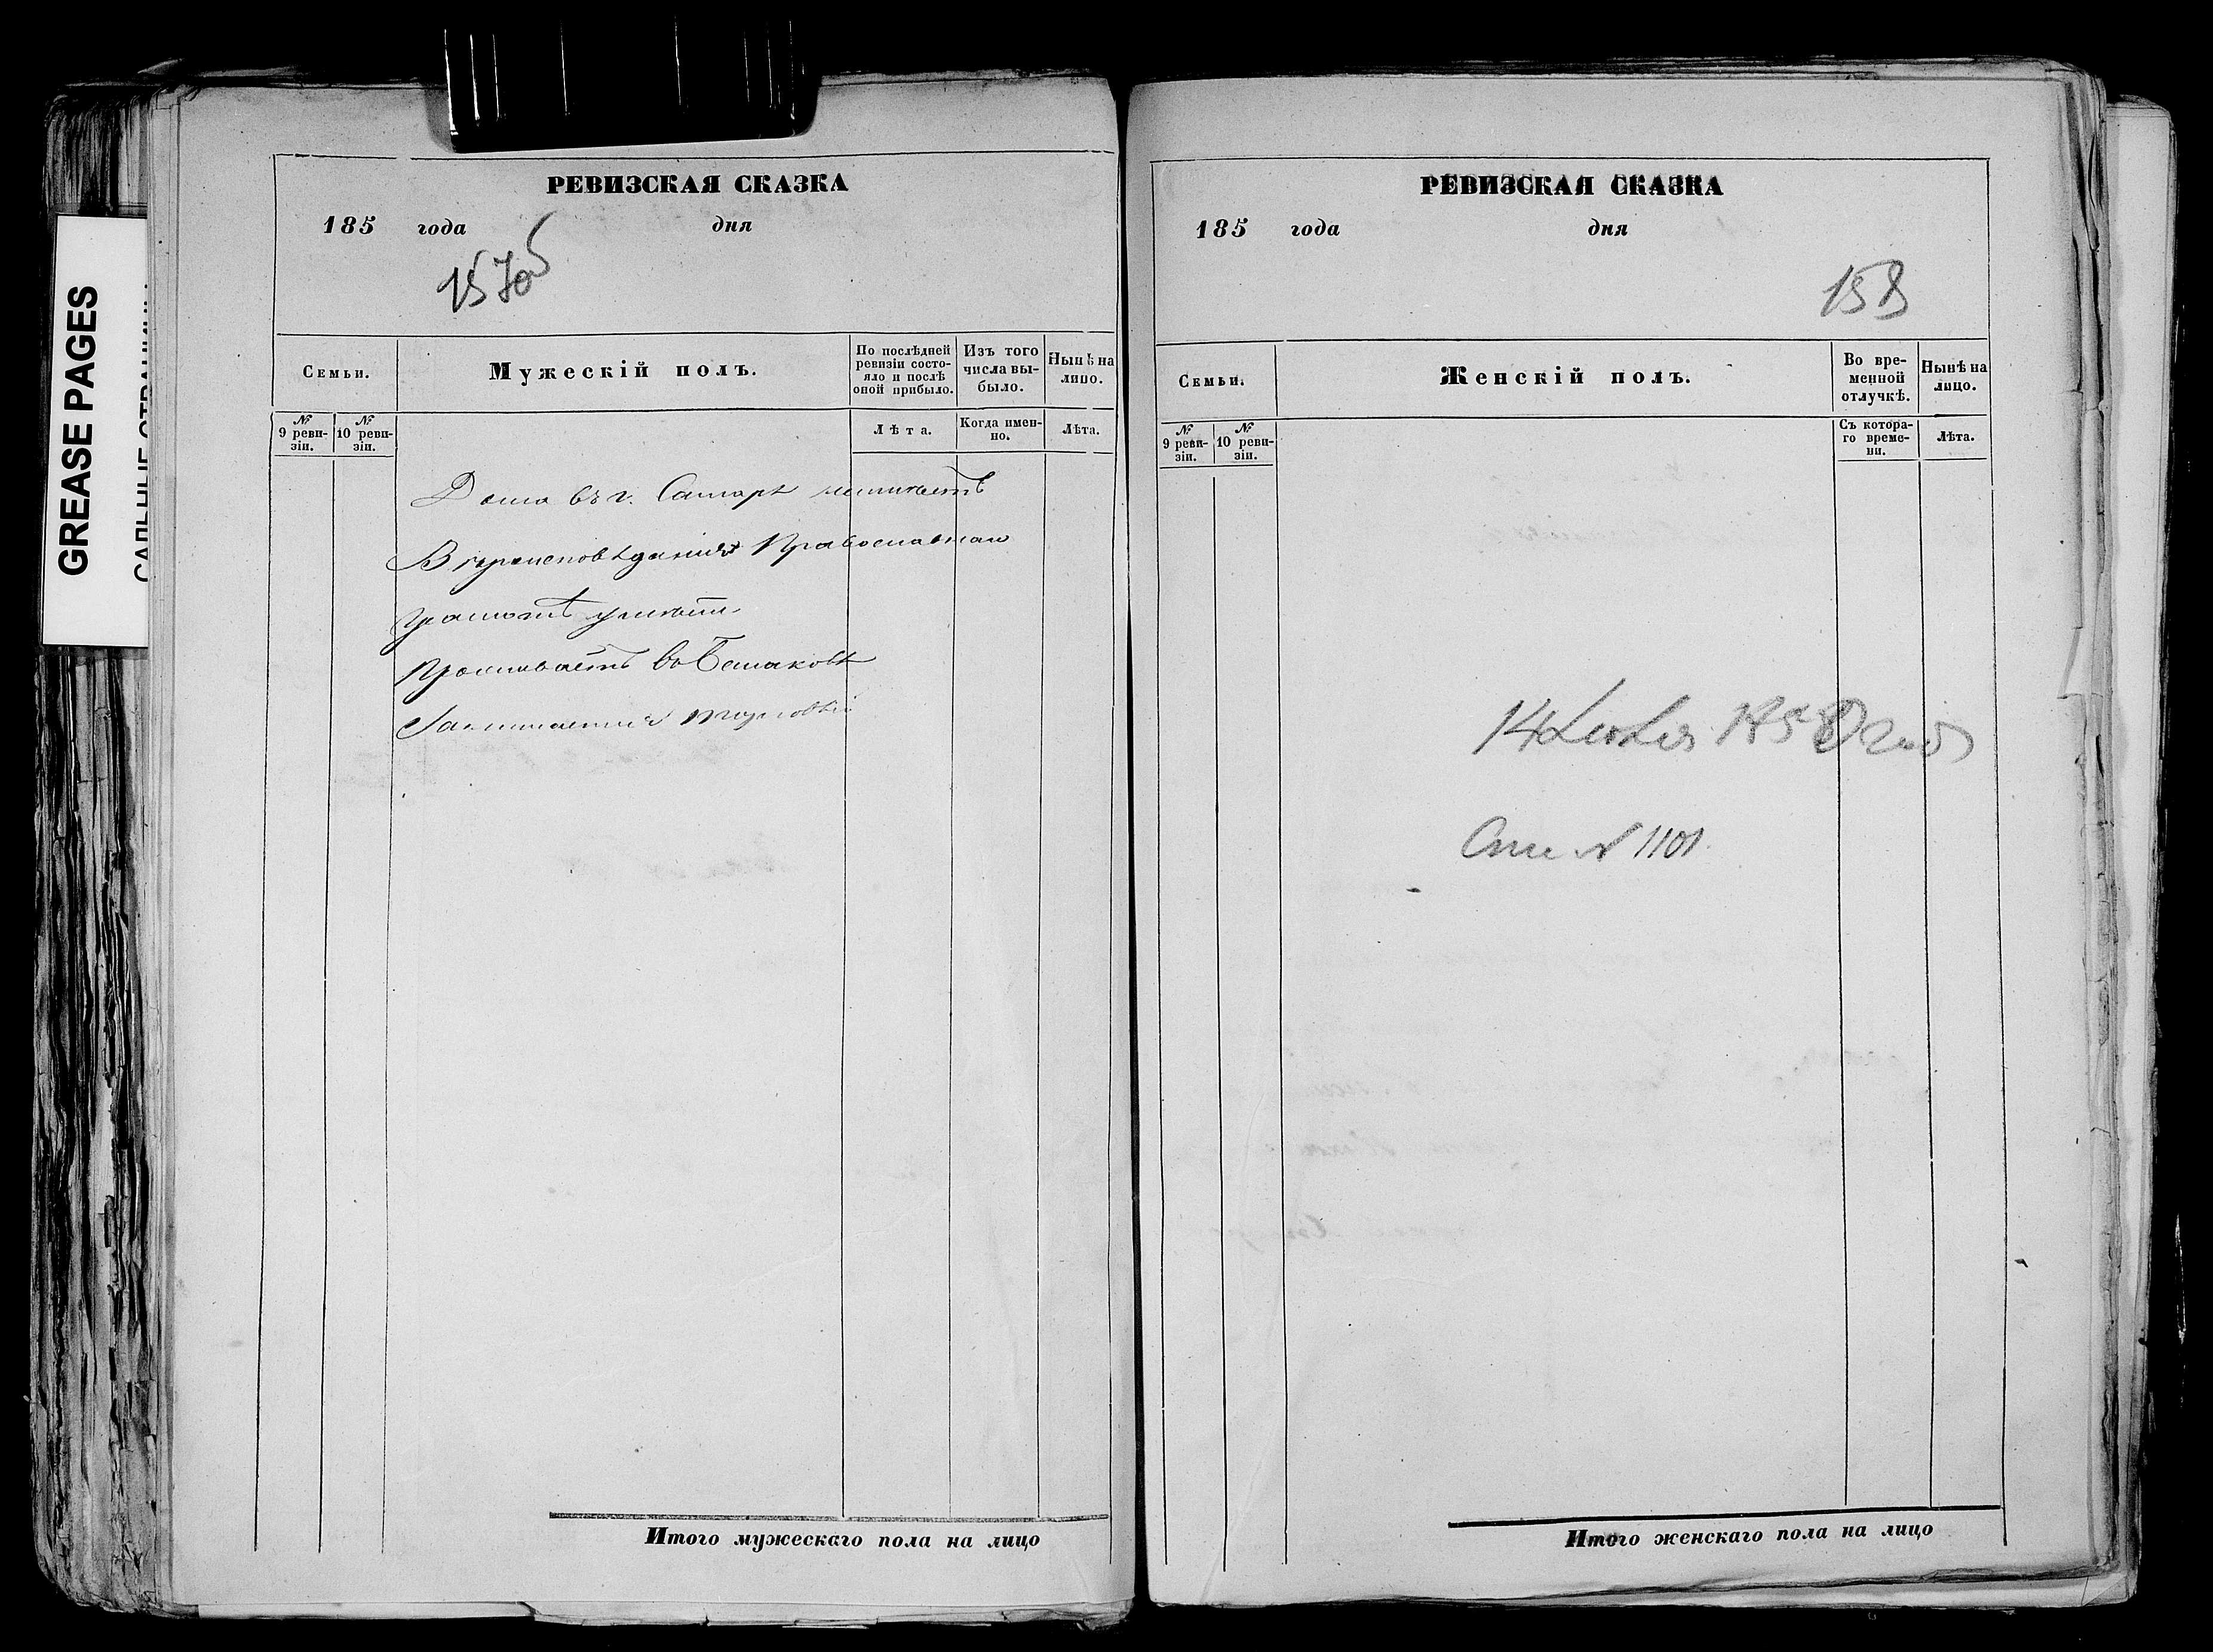 GREASE PAGES
САЛЬНЫЕ СТРАНИЦЫ
РЕВИЗСКАЯ СКАЗКА
185 года дня
157об
Семьи.
Мужескій полъ.
По послѣдней ревизіи состояло и послѣ оной прибыло.
Изъ того числа выбыло.
Нынѣ на лицо.
№ 9 ревизіи.
№ 10 ревизіи.
Лѣта.
Когда именно.
Лѣта.
Дома въ г. Самарѣ неимѣетъ
Вѣроисповѣданія Православнаго
грамотѣ умѣетъ
Проживаетъ въ
Занимается торговлей
Итого мужескаго пола на лицо
РЕВИЗСКАЯ СКАЗКА
185 года дня
158
Семьи.
Женскій полъ.
Во временной отлучкѣ.
Нынѣ на лицо.
№ 9 ревизіи.
№ 10 ревизіи.
Съ котораго времени.
Лѣта.
14 Іюля 1858 года
№ 1101
Итого женскаго пола на лицо